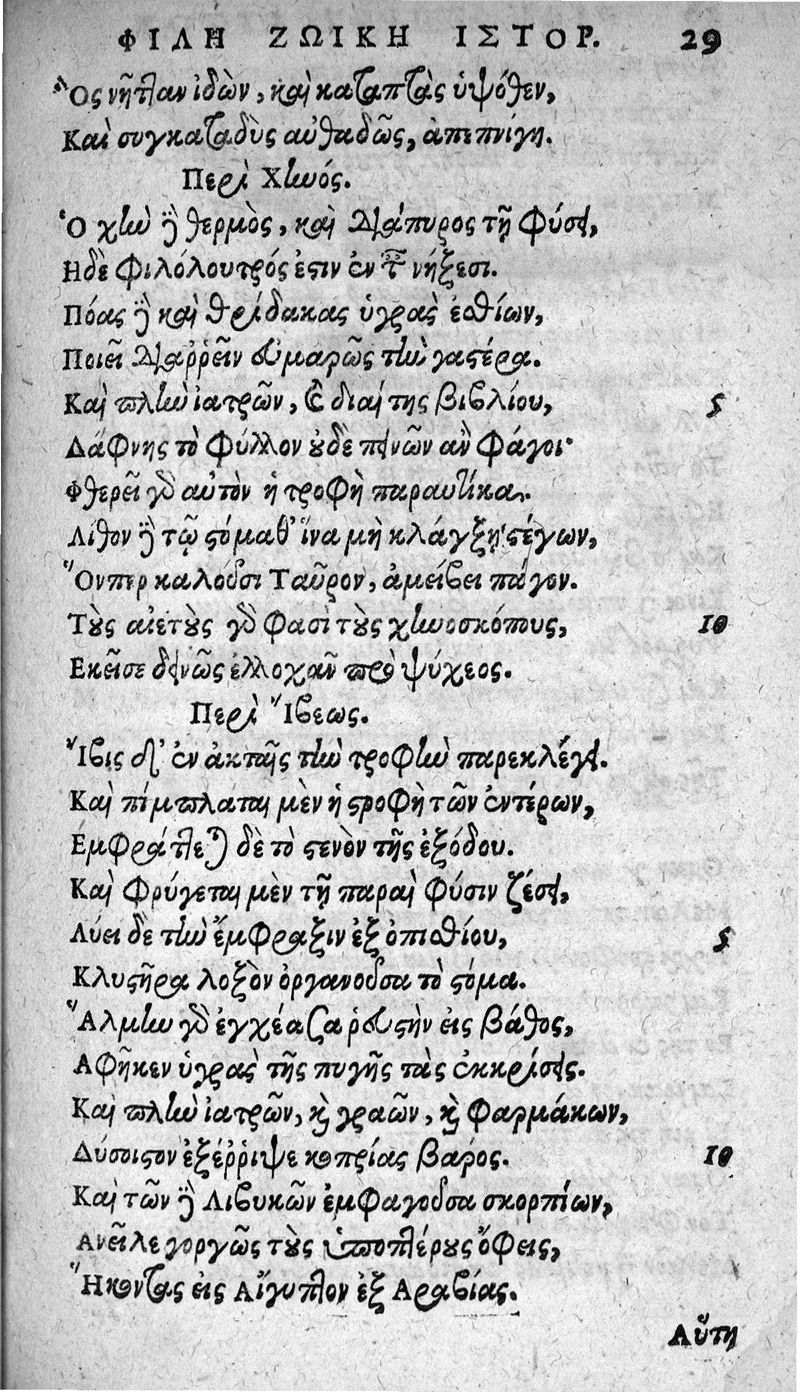 ΦΙΛΗ ΖΩΙΚΗ ΙΣΤΟΡ. 29
Ὃς νῆτταν ἰδὼν, καὶ καταπτὰς ὑψόθεν,
Καὶ συγκαταδὺς αὐθαδῶς, ἀπεπνίγη.
Περὶ Χηνός.
Ὁ χὴν δὲ θερμὸς, καὶ διάπυρος τῇ φύσει,
Ηδὲ φιλόλουτρός ἐστιν ἐν τῷ νήξεσι.
Πόας δὲ καὶ θρίδακας ὑγρὰς ἐσθίων,
Ποιεῖ διαῤῥεῖν εὐμαρῶς τὴν γαστέρα.
Καὶ πλὴν ἰατρῶν, καὶ διαίτης βιβλίου, 5
Δάφνης τὸ φύλλον οὐδὲ πεινῶν ἂν φάγοι·
Φθερεῖ γὰρ αὐτὸν ἡ τροφὴ παραυτίκα.
Λίθον δὲ τῷ στόμαθ' ἵνα μὴ κλάγξῃ στέγων,
Ὅνπερ καλοῦσι Ταῦρον, ἀμείβει πάγον.
Τοὺς αἰετοὺς γὰρ φασὶ τοὺς χηνοσκόπους, 10
Εκεῖσε δεινῶς ἐλλοχᾶν πρὸ ψύχεος.
Περὶ Ἴβεως.
Ἴβις δ' ἐν ἀκταῖς τὴν τροφὴν παρεκλέγει.
Καὶ πίμπλαται μὲν ἡ στροφὴ τῶν ἐντέρων,
Εμφράττεται δὲ τὸ στενὸν τῆς ἐξόδου.
Καὶ φρύγεται μὲν τῇ παραὶ φύσιν ζέσει,
Λύει δὲ τὴν ἔμφραξιν ἐξ ὀπισθίου, 5
Κλυστῆρα λοξὸν ὀργανοῦσα τὸ στόμα.
Ἅλμην γὰρ ἐγχέασα ῥευστὴν εἰς βάθος,
Αφῆκεν ὑγρὰς τῆς πυγῆς τὰς ἐκκρίσεις.
Καὶ πλὴν ἰατρῶν, καὶ γραῶν, καὶ φαρμάκων,
Δύσοιστον ἐξέῤῥιψε κοπρίας βάρος. 10
Καὶ τῶν δὲ Λιβυκῶν ἐμφαγοῦσα σκορπίων,
Ανεῖλε γοργῶς τοὺς ὑποπτέρους ὄφεις,
Ἥκοντας εἰς Αἴγυπτον ἐξ Αραβίας.
Αὕτη